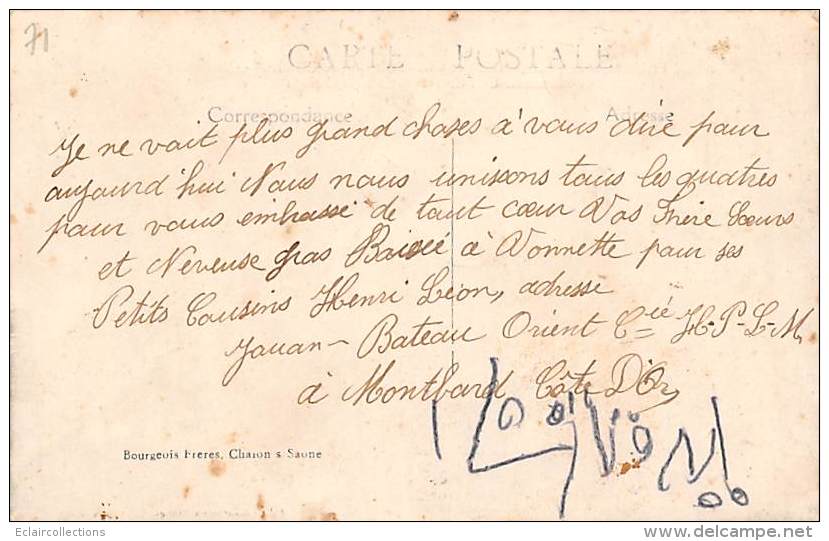 71
CARTE POSTALE
Correspondance Adresse
Je ne vait plus grand choses a vous dire pour
aujourd'hui Nous nous unissons tous les quatres
pour vous embrasse de tout cœur Vos Frère Sœurs
et Neveuse gros Baisée à Vonnette pour ses
Petits Cousins Henri Léon, adresse
Jouan - Bateau Orient Cie H-P-L-M
à Montbard Côte D'Or
Bourgeois Freres, Chalon s Saone
Eclaircollections
www.delcampe.net